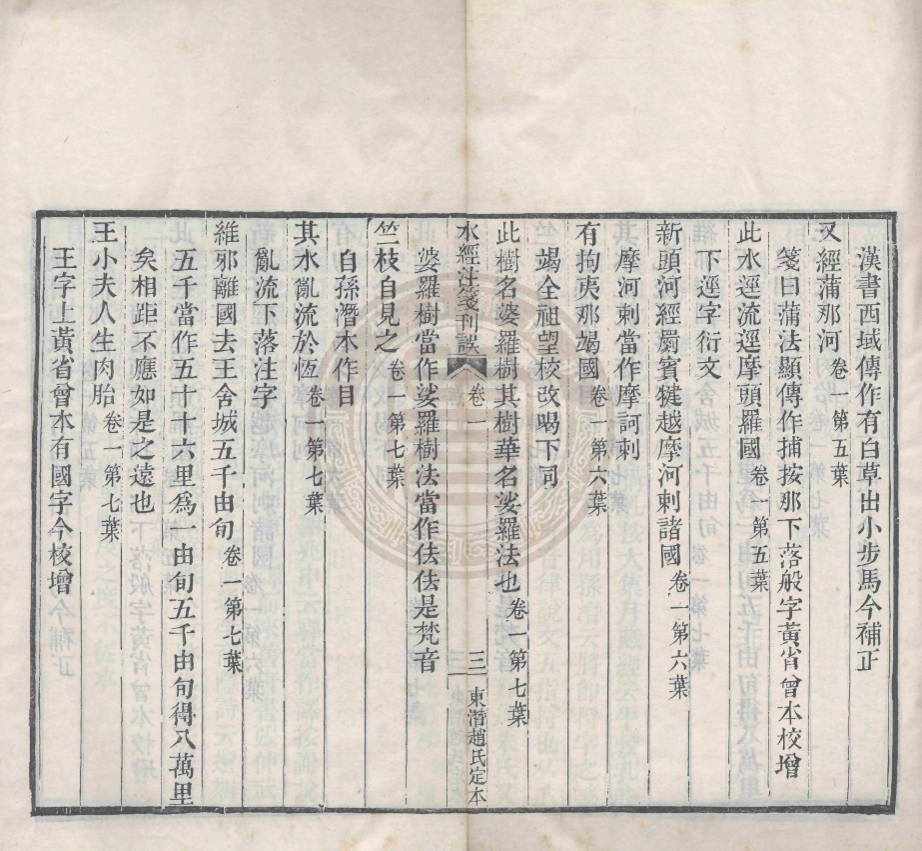 漢書西域傳作有白草出小步馬今補正
又經蒲那河卷一第五葉
箋曰蒲法顯傳作捕按那下落般字黃省曾本校增
此水逕流逕摩頭羅國卷一第五葉
下逕字衍文
新頭河經罽賓犍越摩河剌諸國卷一第六葉
摩河剌當作摩訶剌
有拘夷那竭國卷一第六葉
竭全祖望校改喝下同
此樹名娑羅樹其樹華名娑羅法也卷一第七葉
水經注箋刊誤 卷一 三 東潛趙氏定本
娑羅樹當作娑羅樹法當作佉佉是梵音
竺枝自見之卷一第七葉
自孫潛本作目
其水亂流於恆卷一第七葉
亂流下落注字
維邪離國去王舍城五千由旬卷一第七葉
五千當作五十十六里爲一由旬五千由旬得八萬里
矣相距不應如是之遠也
王小夫人生肉胎卷一第七葉
王字上黃省曾本有國字今校增